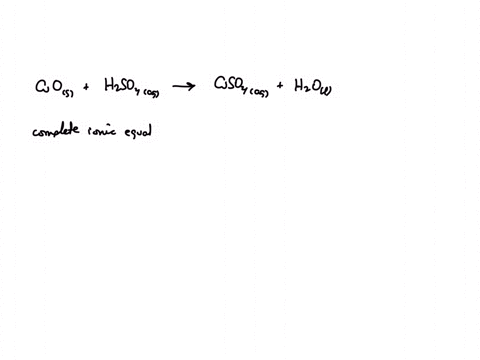 CuO(s) + H2SO4(aq) → CuSO4(aq) + H2O(l)
complete ionic equal